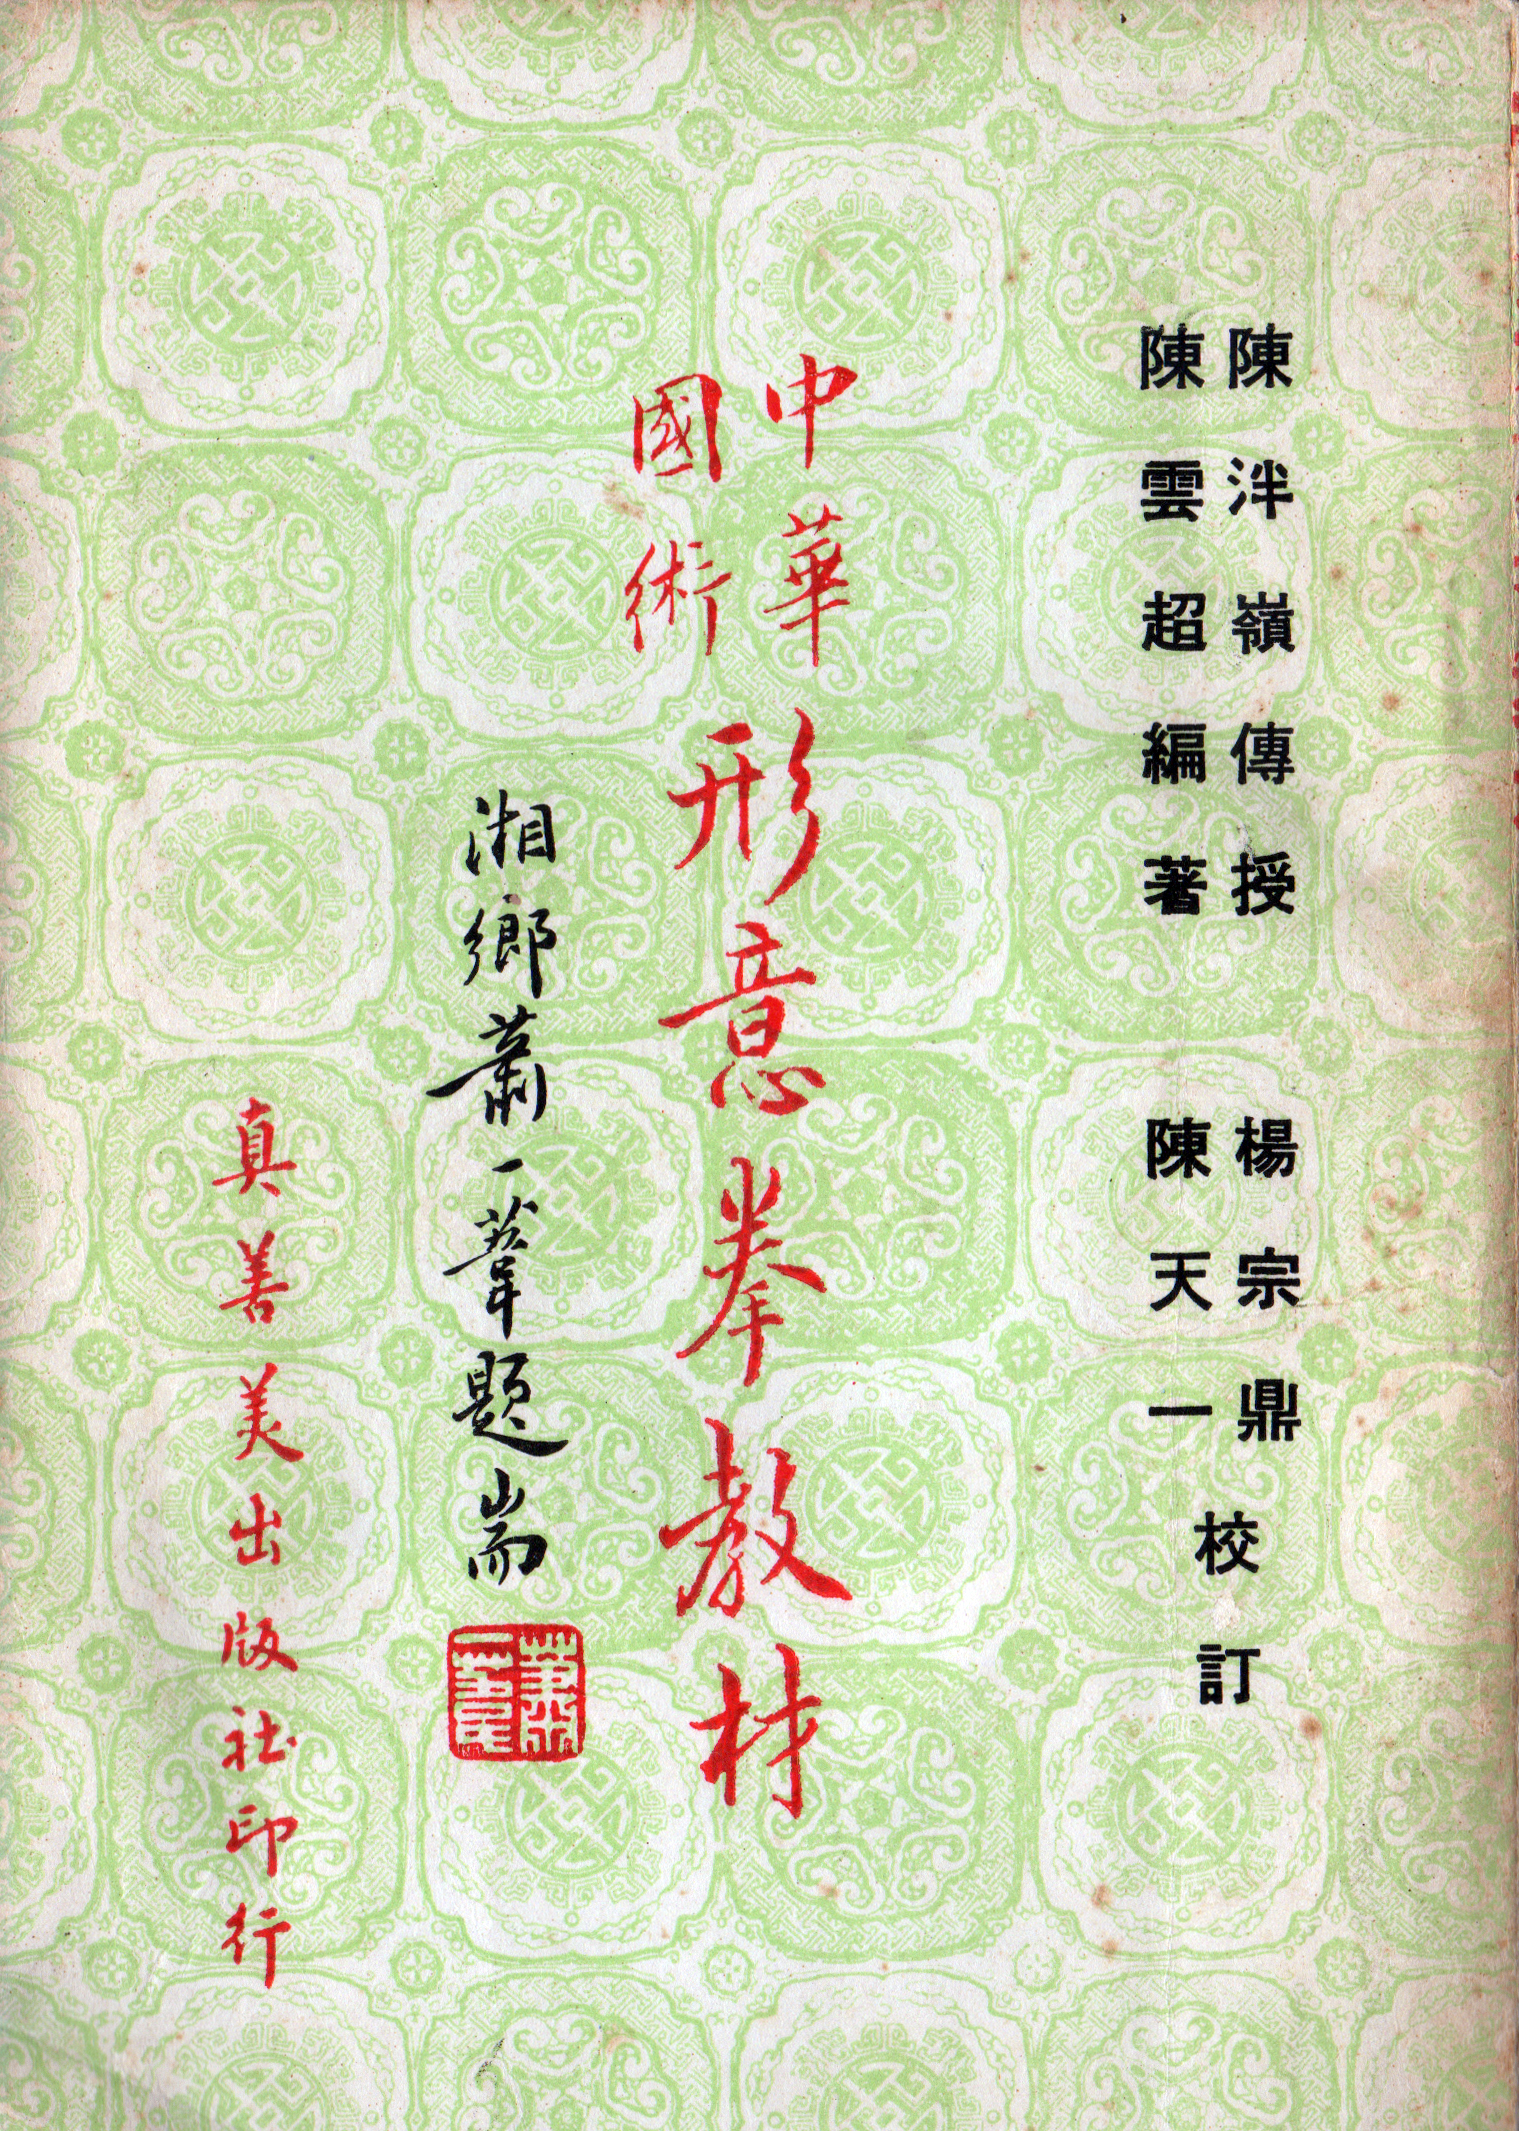 陳泮嶺傳授
陳雲超編著
楊宗鼎
陳天一
校訂
中華
國術
形意拳教材
湘鄉蕭一葦題耑
蕭一葦
真善美出版社印行